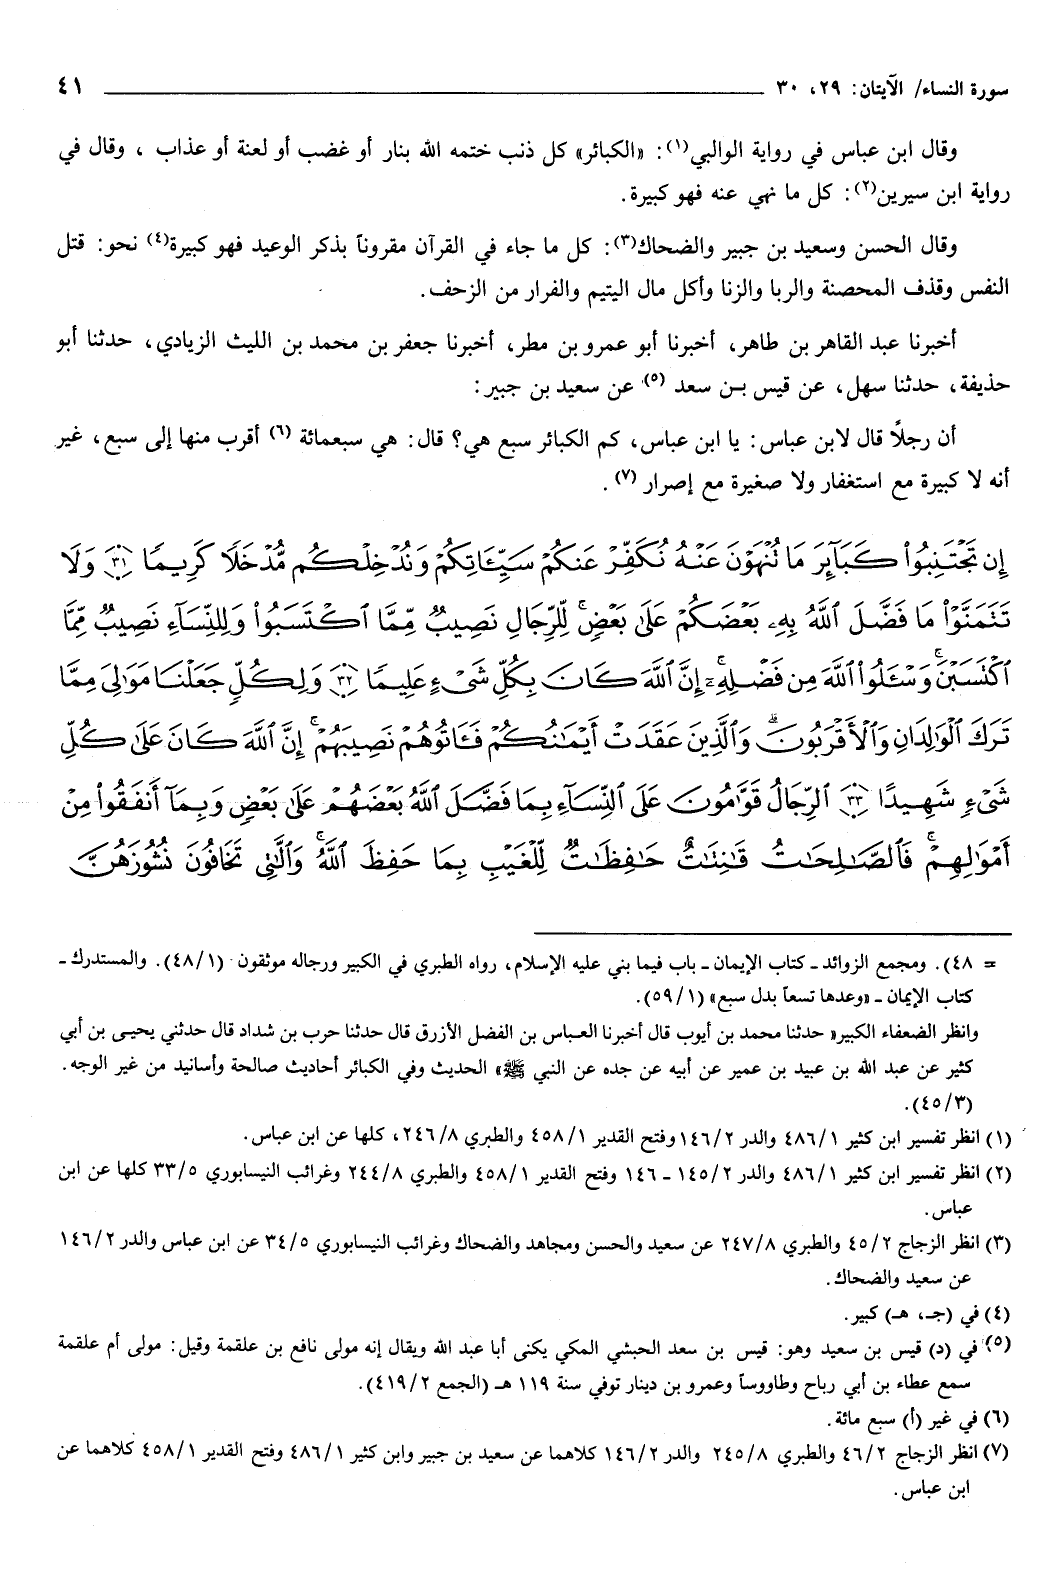 سورة النساء/ الآيتان: ٢٩، ٣٠ ٤١
وقال ابن عباس في رواية الوالبي(١): «الكبائر» كل ذنب ختمه الله بنار أو غضب أو لعنة أو عذاب ، وقال في
رواية ابن سيرين(٢): كل ما نهي عنه فهو كبيرة.
وقال الحسن وسعيد بن جبير والضحاك(٣): كل ما جاء في القرآن مقروناً بذكر الوعيد فهو كبيرة(٤) نحو: قتل
النفس وقذف المحصنة والربا والزنا وأكل مال اليتيم والفرار من الزحف.
أخبرنا عبد القاهر بن طاهر، أخبرنا أبو عمرو بن مطر، أخبرنا جعفر بن محمد بن الليث الزيادي، حدثنا أبو
حذيفة، حدثنا سهل، عن قيس بـن سعد (٥) عن سعيد بن جبير:
أن رجلاً قال لابن عباس: يا ابن عباس، كم الكبائر سبع هي؟ قال: هي سبعمائة (٦) أقرب منها إلى سبع، غير
أنه لا كبيرة مع استغفار ولا صغيرة مع إصرار (٧).
إِن تَجْتَنِبُوا۟ كَبَآئِرَ مَا تُنْهَوْنَ عَنْهُ نُكَفِّرْ عَنكُمْ سَيِّـَٔاتِكُمْ وَنُدْخِلْكُم مُّدْخَلًا كَرِيمًا ﴿٣١﴾ وَلَا
تَتَمَنَّوْا۟ مَا فَضَّلَ ٱللَّهُ بِهِۦ بَعْضَكُمْ عَلَىٰ بَعْضٍ ۚ لِّلرِّجَالِ نَصِيبٌ مِّمَّا ٱكْتَسَبُوا۟ وَلِلنِّسَآءِ نَصِيبٌ مِّمَّا
ٱكْتَسَبْنَ ۚ وَسْـَٔلُوا۟ ٱللَّهَ مِن فَضْلِهِۦٓ ۗ إِنَّ ٱللَّهَ كَانَ بِكُلِّ شَىْءٍ عَلِيمًا ﴿٣٢﴾ وَلِكُلٍّ جَعَلْنَا مَوَٰلِىَ مِمَّا
تَرَكَ ٱلْوَٰلِدَانِ وَٱلْأَقْرَبُونَ ۚ وَٱلَّذِينَ عَقَدَتْ أَيْمَٰنُكُمْ فَـَٔاتُوهُمْ نَصِيبَهُمْ ۚ إِنَّ ٱللَّهَ كَانَ عَلَىٰ كُلِّ
شَىْءٍ شَهِيدًا ﴿٣٣﴾ ٱلرِّجَالُ قَوَّٰمُونَ عَلَى ٱلنِّسَآءِ بِمَا فَضَّلَ ٱللَّهُ بَعْضَهُمْ عَلَىٰ بَعْضٍ وَبِمَآ أَنفَقُوا۟ مِنْ
أَمْوَٰلِهِمْ ۚ فَٱلصَّٰلِحَٰتُ قَٰنِتَٰتٌ حَٰفِظَٰتٌ لِّلْغَيْبِ بِمَا حَفِظَ ٱللَّهُ ۚ وَٱلَّٰتِى تَخَافُونَ نُشُوزَهُنَّ
= ٤٨). ومجمع الزوائد ـ كتاب الإيمان ـ باب فيما بني عليه الإسلام، رواه الطبري في الكبير ورجاله موثقون (٤٨/١). والمستدرك ـ
كتاب الإيمان ـ «وعدها تسعاً بدل سبع» (٥٩/١).
وانظر الضعفاء الكبير» حدثنا محمد بن أيوب قال أخبرنا العباس بن الفضل الأزرق قال حدثنا حرب بن شداد قال حدثني يحيـى بن أبي
كثير عن عبد الله بن عبيد بن عمير عن أبيه عن جده عن النبي ﷺ» الحديث وفي الكبائر أحاديث صالحة وأسانيد من غير الوجه.
(٤٥/٣).
(١) انظر تفسير ابن كثير ٤٨٦/١ والدر ١٤٦/٢ وفتح القدير ٤٥٨/١ والطبري ٢٤٦/٨، كلها عن ابن عباس.
(٢) انظر تفسير ابن كثير ٤٨٦/١ والدر ١٤٥/٢ ـ ١٤٦ وفتح القدير ٤٥٨/١ والطبري ٢٤٤/٨ وغرائب النيسابوري ٣٣/٥ كلها عن ابن
عباس.
(٣) انظر الزجاج ٤٥/٢ والطبري ٢٤٧/٨ عن سعيد والحسن ومجاهد والضحاك وغرائب النيسابوري ٣٤/٥ عن ابن عباس والدر ١٤٦/٢
عن سعيد والضحاك.
(٤) في (جـ، هـ) كبير.
(٥) في (د) قيس بن سعيد وهو: قيس بن سعد الحبشي المكي يكنى أبا عبد الله ويقال إنه مولى نافع بن علقمة وقيل: مولى أم علقمة
سمع عطاء بن أبي رباح وطاووساً وعمرو بن دينار توفي سنة ١١٩ هـ (الجمع ٤١٩/٢).
(٦) في غير (أ) سبع مائة.
(٧) انظر الزجاج ٤٦/٢ والطبري ٢٤٥/٨ والدر ١٤٦/٢ كلاهما عن سعيد بن جبير وابن كثير ٤٨٦/١ وفتح القدير ٤٥٨/١ كلاهما عن
ابن عباس.